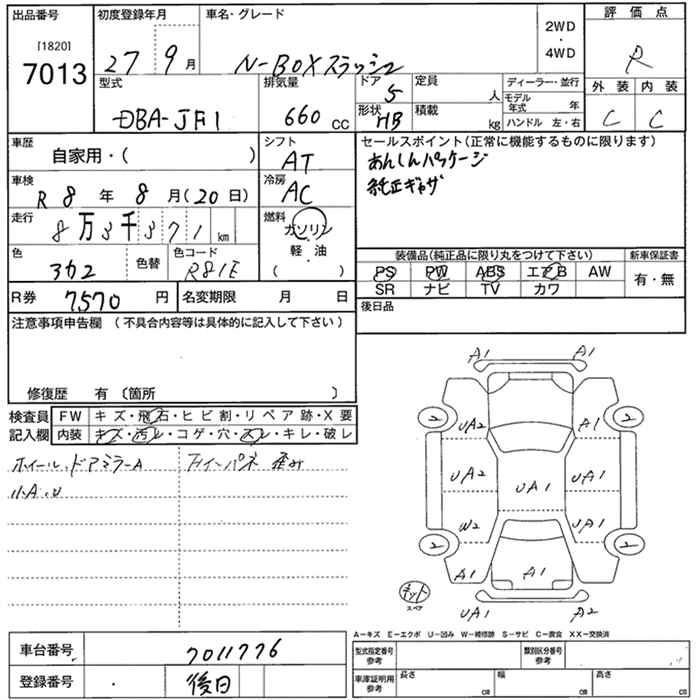 出品番号
[1820]
7013
初度登録年月
27 9月
車名・グレード
N-BOXスラッシュ
2WD
・
4WD
評価点
R
外装 内装
C C
型式
DBA-JF1
排気量
660 cc
ドア 5
形状 HB
定員 人
積載 kg
ディーラー・並行
モデル年式 年
ハンドル 左・右
車歴
自家用・( )
シフト
AT
車検
R 8 年 8 月(20日)
冷房
AC
走行
8万3千371 km
燃料
ガソリン
・
軽油
・
( )
色
色替
色コード
R81E
R券 7570 円
名変期限 月 日
セールスポイント(正常に機能するものに限ります)
あんしんパッケージ
純正ギャザ
装備品(純正品に限り丸をつけて下さい)
新車保証書
PS PW ABS エアB AW
有・無
SR ナビ TV カワ
後日品
注意事項申告欄 (不具合内容等は具体的に記入して下さい)
修復歴 有 〔箇所 〕
検査員
記入欄
FW キズ・飛石・ヒビ割・リペア跡・X要
内装 キズ・汚レ・コゲ・穴・スレ・キレ・破レ
ホイール、ドアミラーA
小A、U
A1 A1
2 2
UA2 A1
UA2 UA1 UA1
W2 UA1
2 2
A1 A1
キット
スペア
UA1 A2
A-キズ E-エクボ U-凹み W-補修跡 S-サビ C-腐食 XX-交換済
車台番号
7011776
登録番号
後日
型式指定番号
参考
類別区分番号
参考
車庫証明用
参考
長さ cm
幅 cm
高さ cm